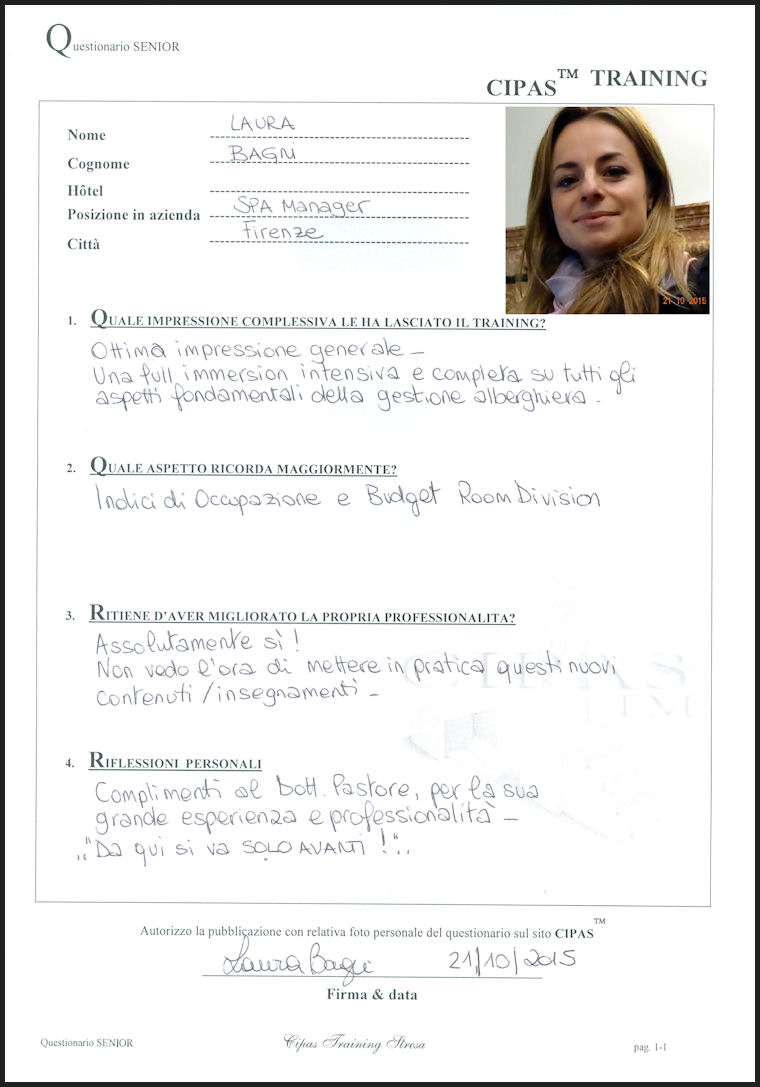 Questionario SENIOR
CIPAS™ TRAINING
Nome LAURA
Cognome BAGNI
Hôtel
Posizione in azienda SPA Manager
Città Firenze
21 10 2015
1. QUALE IMPRESSIONE COMPLESSIVA LE HA LASCIATO IL TRAINING?
Ottima impressione generale –
Una full immersion intensiva e completa su tutti gli
aspetti fondamentali della gestione alberghiera -
2. QUALE ASPETTO RICORDA MAGGIORMENTE?
Indici di Occupazione e Budget Room Division
3. RITIENE D'AVER MIGLIORATO LA PROPRIA PROFESSIONALITA?
Assolutamente sì!
Non vedo l'ora di mettere in pratica questi nuovi
contenuti / insegnamenti –
CIPAS
TM
4. RIFLESSIONI PERSONALI
Complimenti al Dott. Pastore, per la sua
grande esperienza e professionalità –
.."Da qui si va SOLO AVANTI!"..
Autorizzo la pubblicazione con relativa foto personale del questionario sul sito CIPAS™
Laura Bagni 21/10/2015
Firma & data
Questionario SENIOR Cipas Training Stresa pag. 1-1